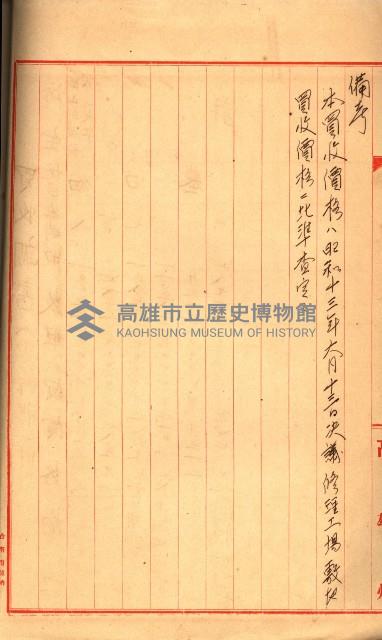 備考
本買收價格ハ昭和十三年六月十三日決議修理工場敷地
買收價格ニ比準査定
高雄市立歷史博物館
KAOHSIUNG MUSEUM OF HISTORY
高雄州